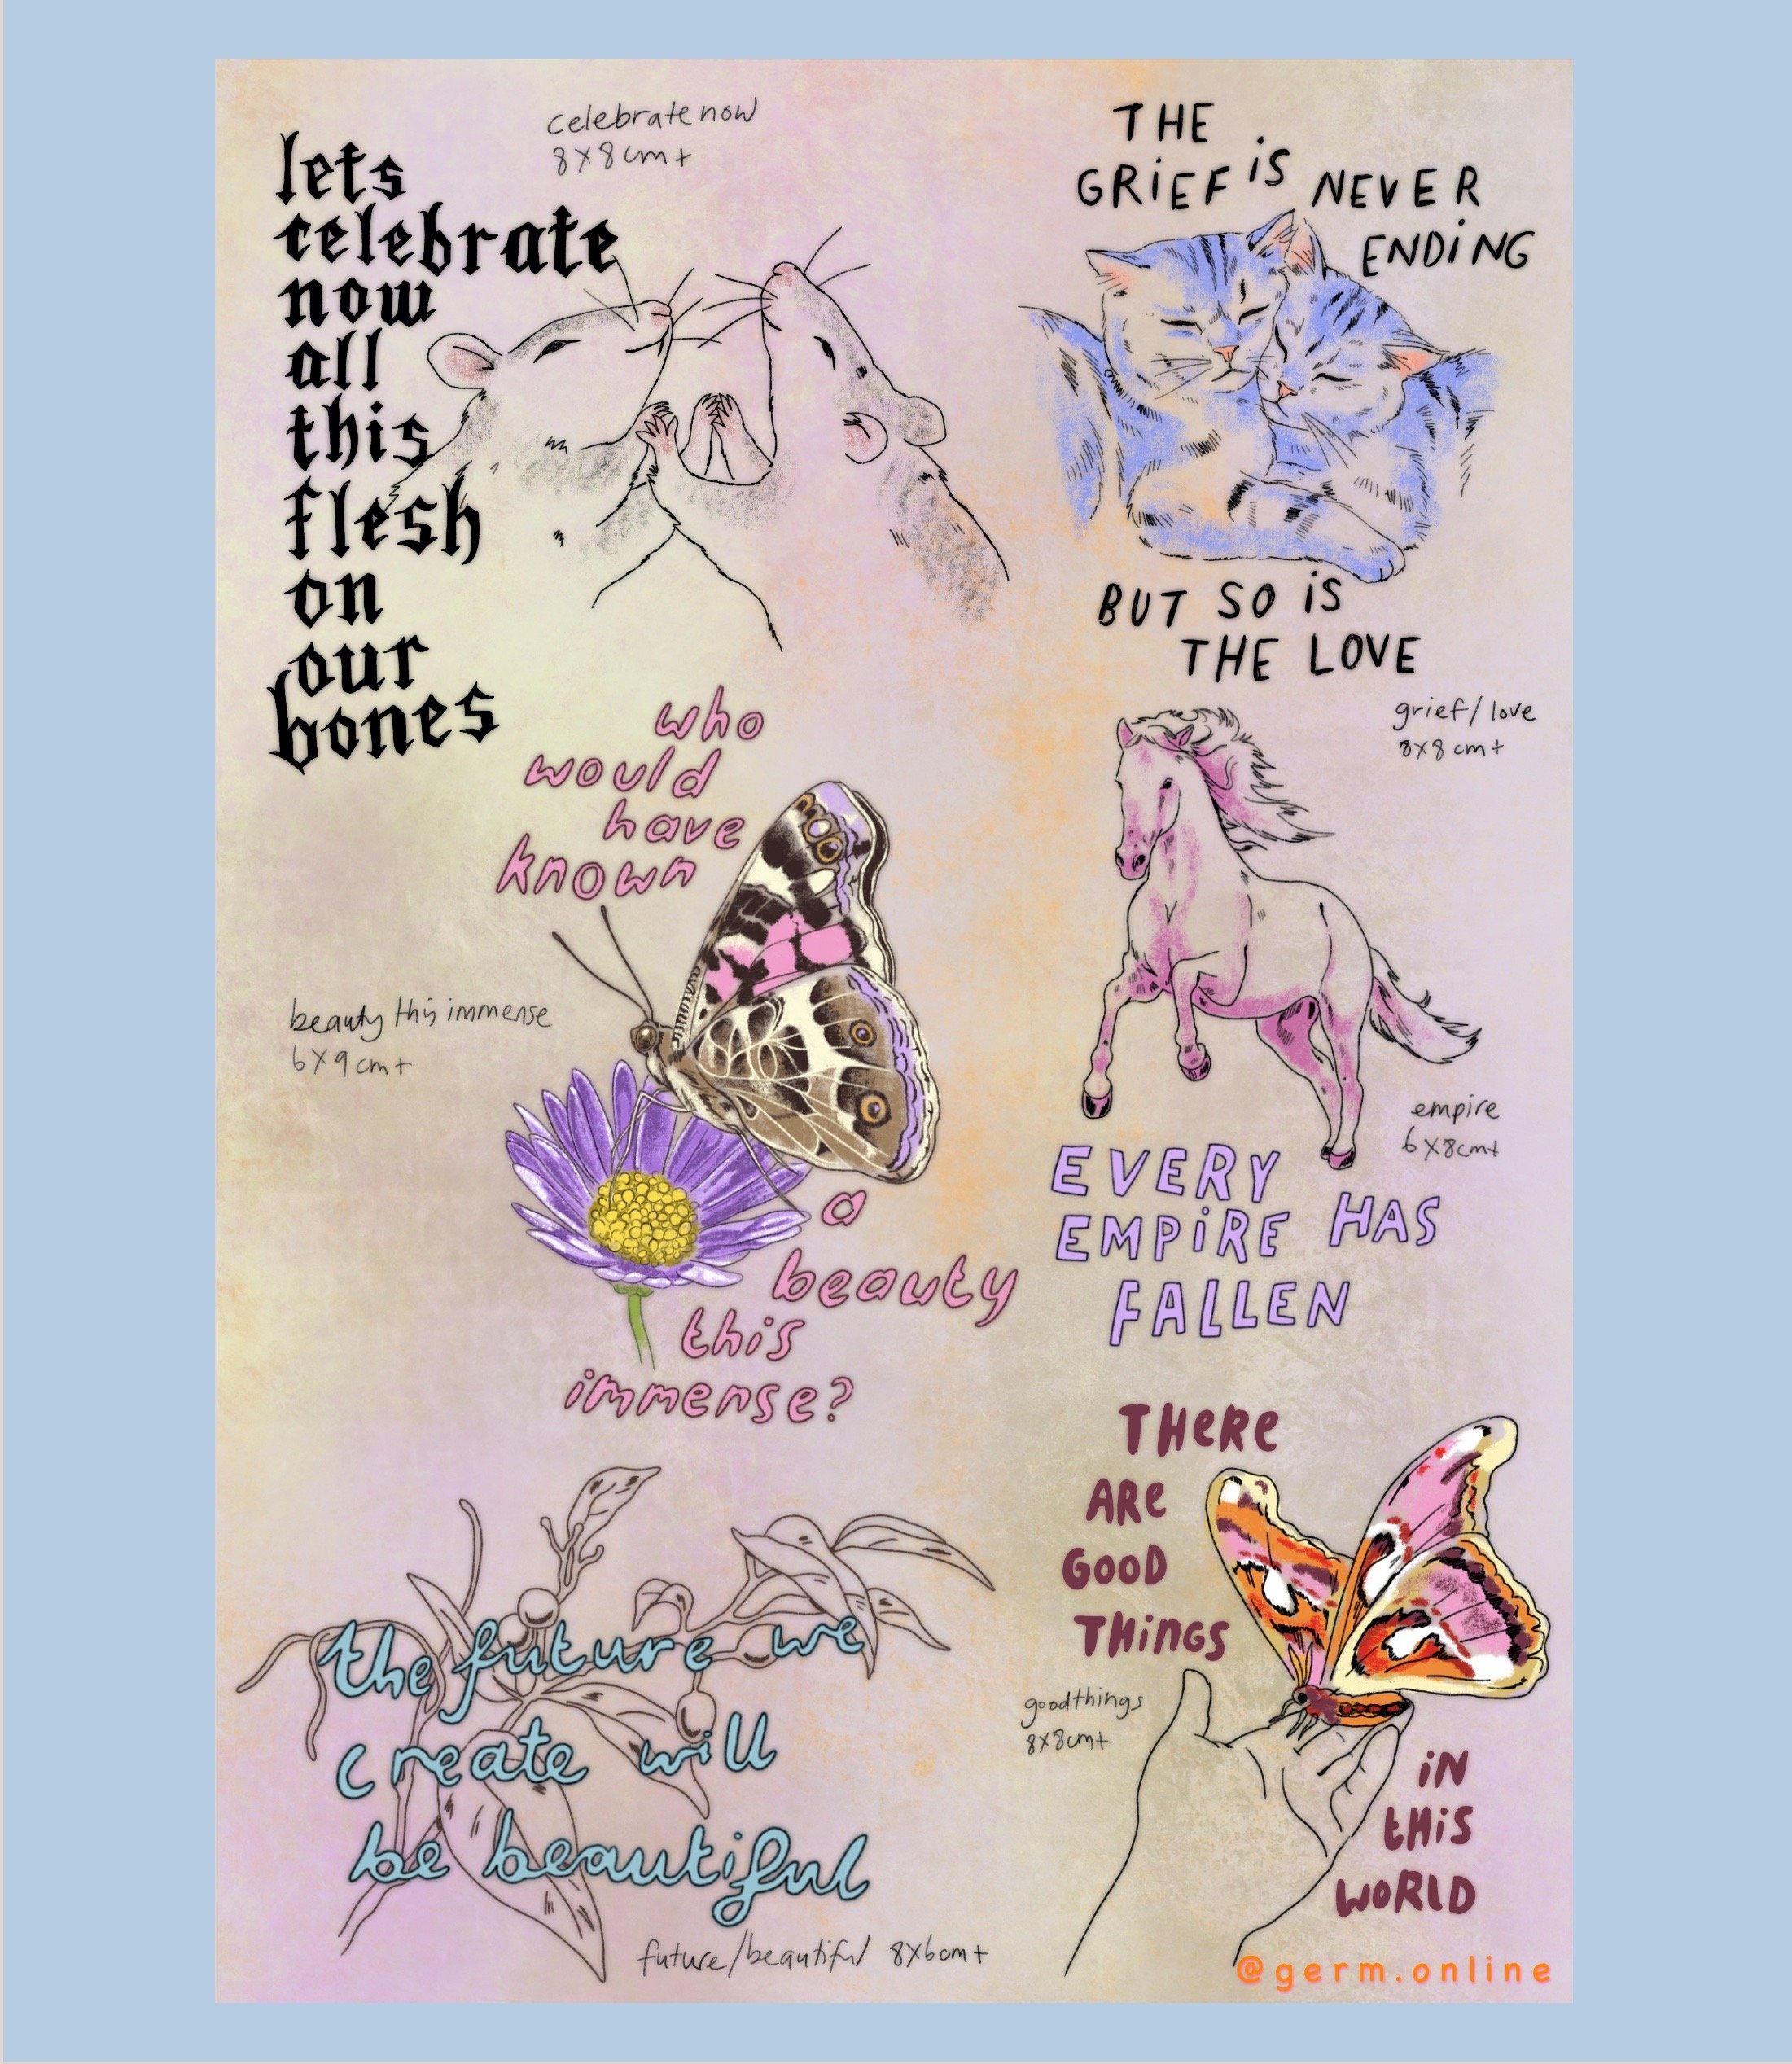 celebrate now
8x8cm+
lets
celebrate
now
all
this
flesh
on
our
bones
THE
GRiEF iS NEVER
ENDiNG
BUT SO iS
THE LOVE
grief/love
8x8cm+
who
would
have
known
a
beauty
this
immense?
beauty this immense
6x9cm+
empire
6x8cm+
EVERY
EMPiRE HAS
FALLEN
THeRe
ARe
GOOD
THinGS
iN
tHiS
WoRLD
goodthings
8x8cm+
the future we
create will
be beautiful
future/beautiful 8x6cm+
@germ.online